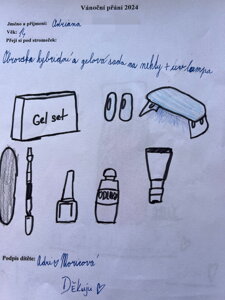 Vánoční přání 2024
Jméno a příjmení: Adriana
Věk:
Přeji si pod stromeček:
Obrovská hybridní a gelová sada na nehty + uv lampa
Gel set
Podpis dítěte: Adri
Děkuju